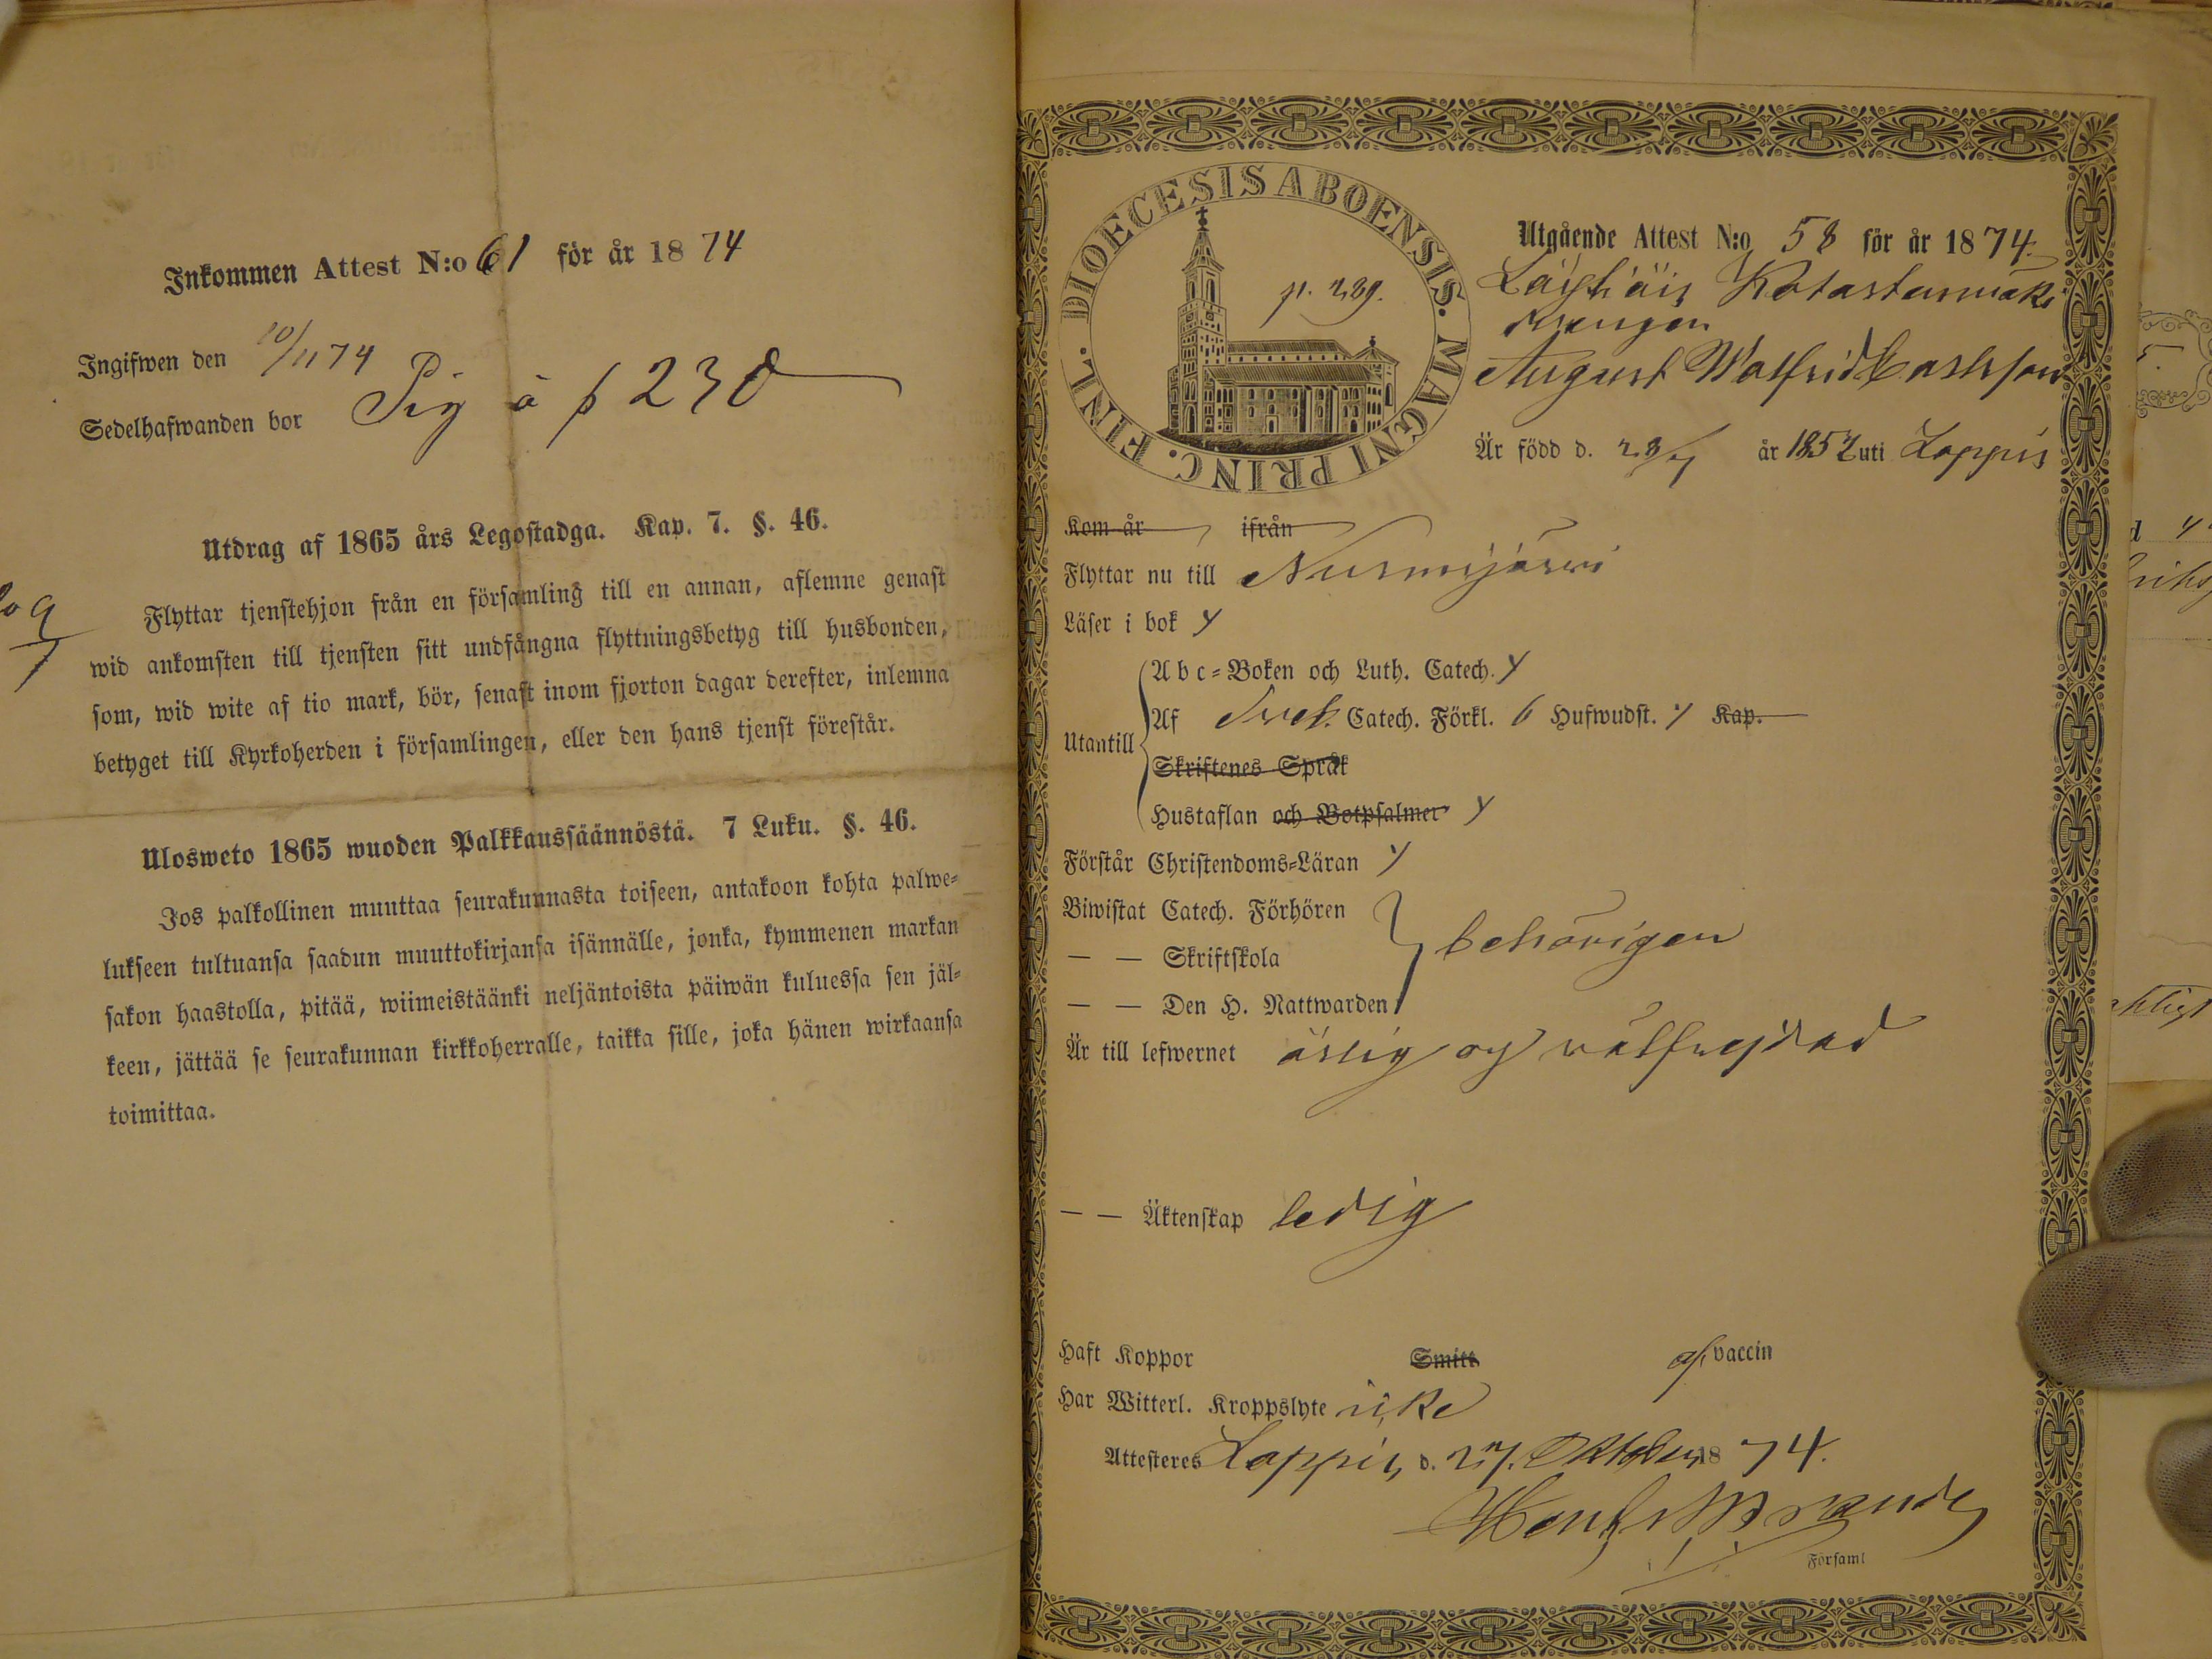 Inkommen Attest N:o 61 för år 1874
Ingifwen den 10/11 74
Sedelhafwanden bor Pig å p 230
Utdrag af 1865 års Legostadga. Kap. 7. §. 46.
Flyttar tjenstehjon från en församling till en annan, aflemne genast
wid ankomsten till tjensten sitt undfångna flyttningsbetyg till husbonden,
som, wid wite af tio mark, bör, senast inom fjorton dagar derefter, inlemna
betyget till Kyrkoherden i församlingen, eller den hans tjenst förestår.
Ulosweto 1865 wuoden Palkkaussäännöstä. 7 Luku. §. 46.
Jos palkollinen muuttaa seurakunnasta toiseen, antakoon kohta palwe-
lukseen tultuansa saadun muuttokirjansa isännälle, jonka, kymmenen markan
sakon haastolla, pitää, wiimeistäänki neljäntoista päiwän kuluessa sen jäl-
keen, jättää se seurakunnan kirkkoherralle, taikka sille, joka hänen wirkaansa
toimittaa.
DIOECESIS ABOENSIS. MAGNI PRINC. FINL.
p. 239.
Utgående Attest N:o 58 för år 1874.
drengen
August Walfrid Carlsson
Är född d. 28/7 år 1852 uti Loppis
Kom år ifrån
Flyttar nu till Nurmijärwi
Läser i bok y
Utantill
Abc-Boken och Luth. Catech. y
Af Sveb. Catech. Förkl. 6 Hufwudst. y Kap.
Skriftenes Språk
Hustaflan och Botpsalmer y
Förstår Christendoms-Läran y
Biwistat Catech. Förhören
— — Skriftskola
— — Den H. Nattwarden
behörigen
Är till lefwernet ärlig och välfrejdad
— — Äktenskap ledig
Haft Koppor Smitt af vaccin
Har Witterl. Kroppslyte icke
Attesteres Loppis d. 27. Oktober 1874.
Församl